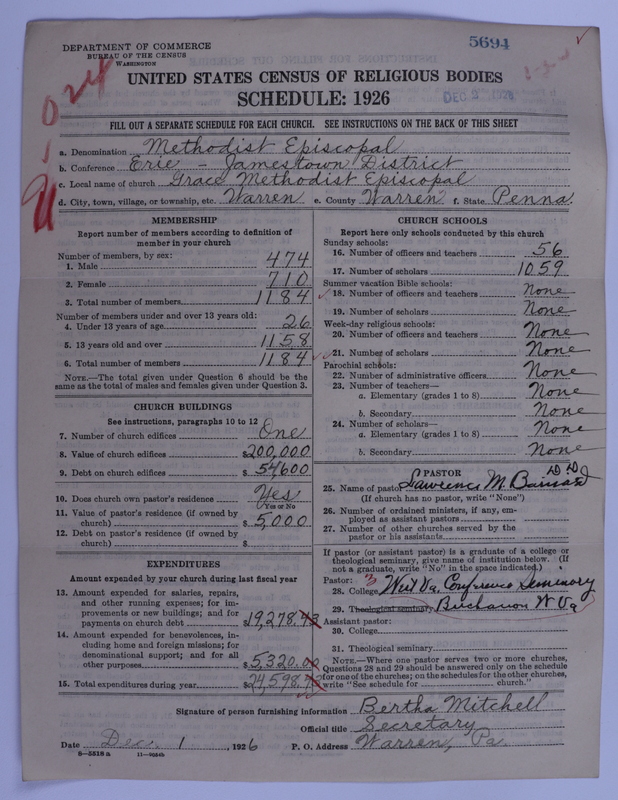 DEPARTMENT OF COMMERCE
BUREAU OF THE CENSUS
WASHINGTON
5694
UNITED STATES CENSUS OF RELIGIOUS BODIES
SCHEDULE: 1926
DEC 3 1926
FILL OUT A SEPARATE SCHEDULE FOR EACH CHURCH. SEE INSTRUCTIONS ON THE BACK OF THIS SHEET
a. Denomination Methodist Episcopal
b. Conference Erie - Jamestown District
c. Local name of church Grace Methodist Episcopal
d. City, town, village, or township, etc. Warren e. County Warren f. State Penna.
MEMBERSHIP
Report number of members according to definition of
member in your church
Number of members, by sex:
1. Male 474
2. Female 710
3. Total number of members 1184
Number of members under and over 13 years old:
4. Under 13 years of age 26
5. 13 years old and over 1158
6. Total number of members 1184
NOTE.—The total given under Question 6 should be the
same as the total of males and females given under Question 3.
CHURCH BUILDINGS
See instructions, paragraphs 10 to 12
7. Number of church edifices One
8. Value of church edifices $200,000
9. Debt on church edifices $54600
10. Does church own pastor's residence Yes
Yes or No
11. Value of pastor's residence (if owned by
church) $5,000
12. Debt on pastor's residence (if owned by
church) $
EXPENDITURES
Amount expended by your church during last fiscal year
13. Amount expended for salaries, repairs,
and other running expenses; for im-
provements or new buildings; and for
payments on church debt $19,278.43
14. Amount expended for benevolences, in-
cluding home and foreign missions; for
denominational support; and for all
other purposes $5,320.00
15. Total expenditures during year $24,598.43
CHURCH SCHOOLS
Report here only schools conducted by this church
Sunday schools:
16. Number of officers and teachers 56
17. Number of scholars 1059
Summer vacation Bible schools:
18. Number of officers and teachers None
19. Number of scholars None
Week-day religious schools:
20. Number of officers and teachers None
21. Number of scholars None
Parochial schools:
22. Number of administrative officers None
23. Number of teachers—
a. Elementary (grades 1 to 8) None
b. Secondary None
24. Number of scholars—
a. Elementary (grades 1 to 8) None
b. Secondary None
PASTOR
25. Name of pastor Lawrence M. DD
(If church has no pastor, write "None")
26. Number of ordained ministers, if any, em-
ployed as assistant pastors
27. Number of other churches served by the
pastor or his assistants
If pastor (or assistant pastor) is a graduate of a college or
theological seminary, give name of institution below. (If
not a graduate, write "No" in the space indicated.)
Pastor:
28. College West Va. Conference Seminary
29. Theological seminary Buchanon W Va
Assistant pastor:
30. College
31. Theological seminary
NOTE.—Where one pastor serves two or more churches,
Questions 28 and 29 should be answered only on the schedule
for one of the churches; on the schedules for the other churches,
write "See schedule for church."
Signature of person furnishing information Bertha Mitchell
Official title Secretary
Date Dec. 1, 1926 P. O. Address Warren, Pa
8—5518a